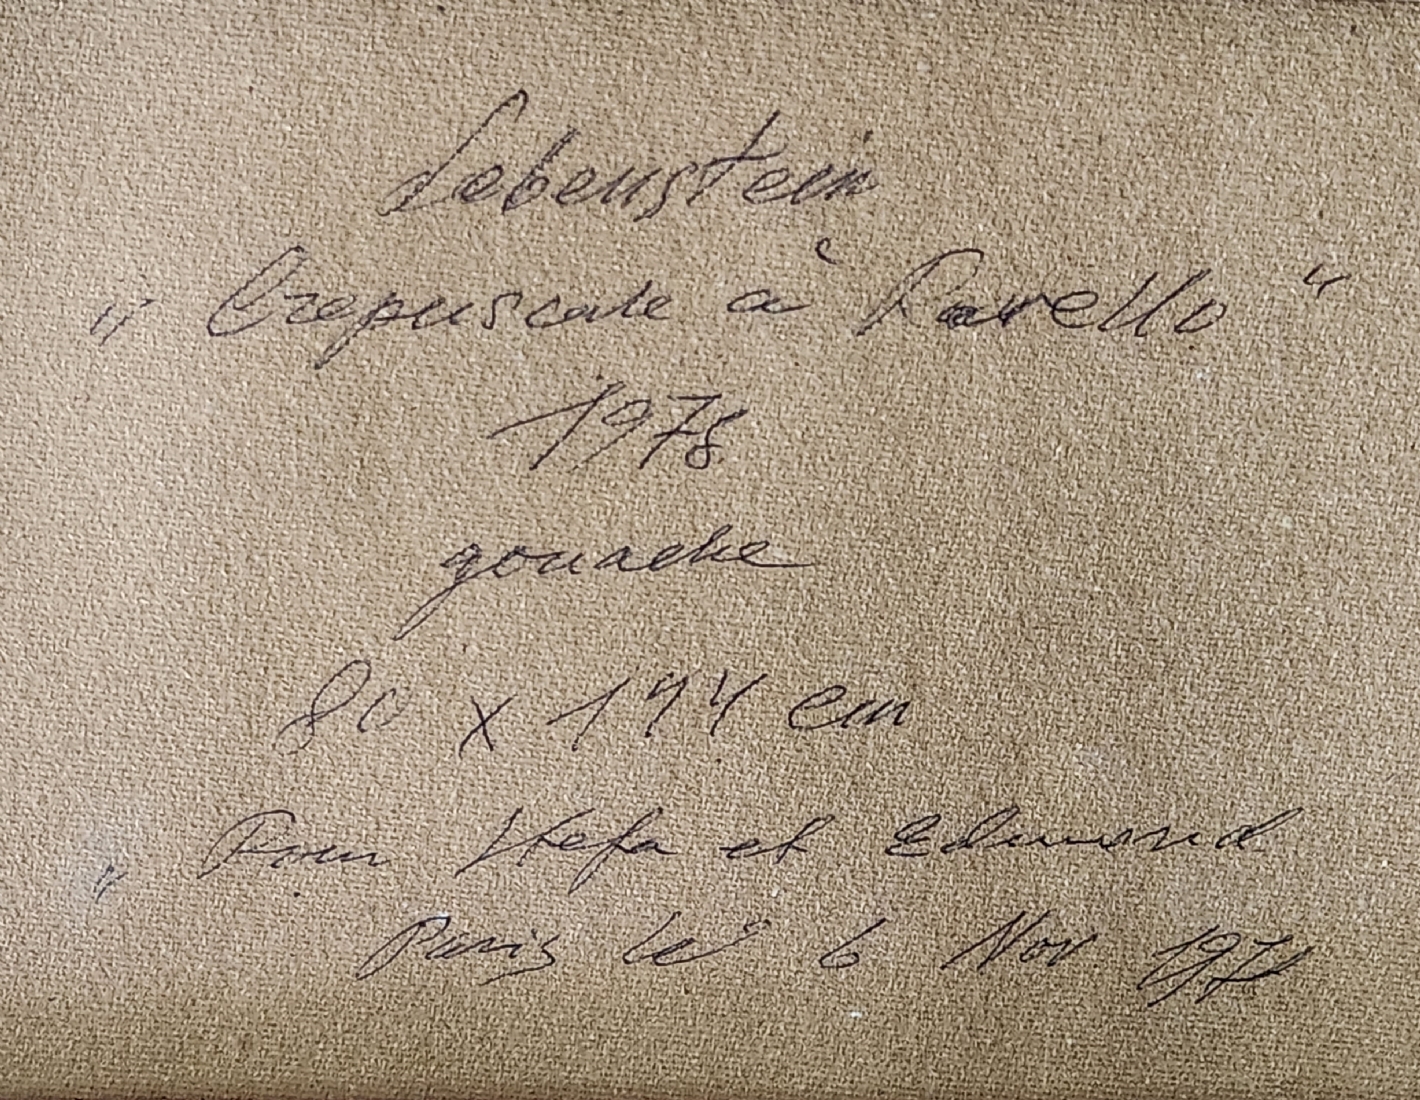 Lebenstein
„ Crepuscule à Ravello “
1978
gouache
80 x 144 cm
„ Pour Stefa et Edmond
Paris le 6 Nov